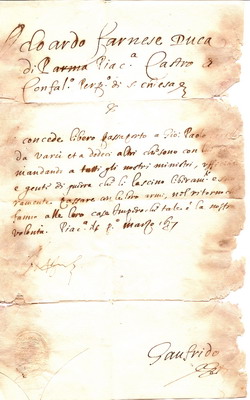 Odoardo Farnese Duca
di Parma Piac.ª Castro
Confal.ª Perp.º di S. Chiesa
concede libero passaporto a Gio: Pao
da Varsi et a dodeci altri che sono con l
mandando a tutti gli nostri ministri, uff
e genti di guerra che li lascino liberam.
passare con le loro armi, nel ritorno
fanno alle loro case che tale è la nostra
volontà. Piac.ª di p.º marzo
Gaufrido